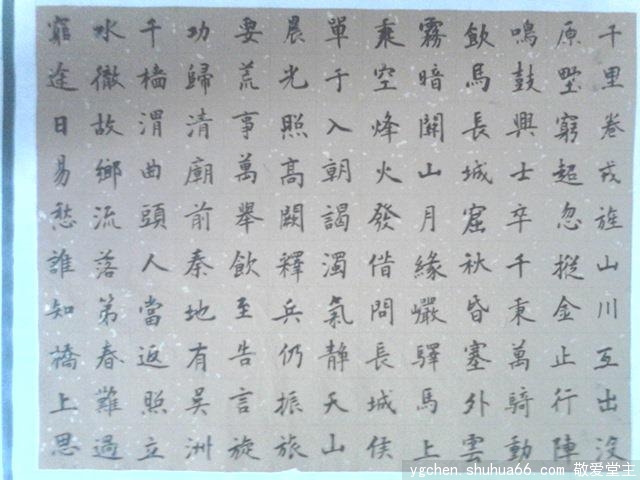 千里卷戎旌山川互出没
原壄窮超忽摐金止行陣
鳴鼓興士卒千秉萬騎動
飲馬長城窟秋昏塞外雲
霧暗關山月緣巖驛馬上
乘空烽火發借問長城侯
單于入朝謁濁氣静天山
晨光照高闕釋兵仍振旅
要荒事萬舉飲至告言旋
功歸清廟前秦地有吴洲
千檣渭曲頭人當返照立
水徹故鄉流落第春難過
窮途日易愁誰知橋上思
ygchen.shuhua66.com 敬爱堂主